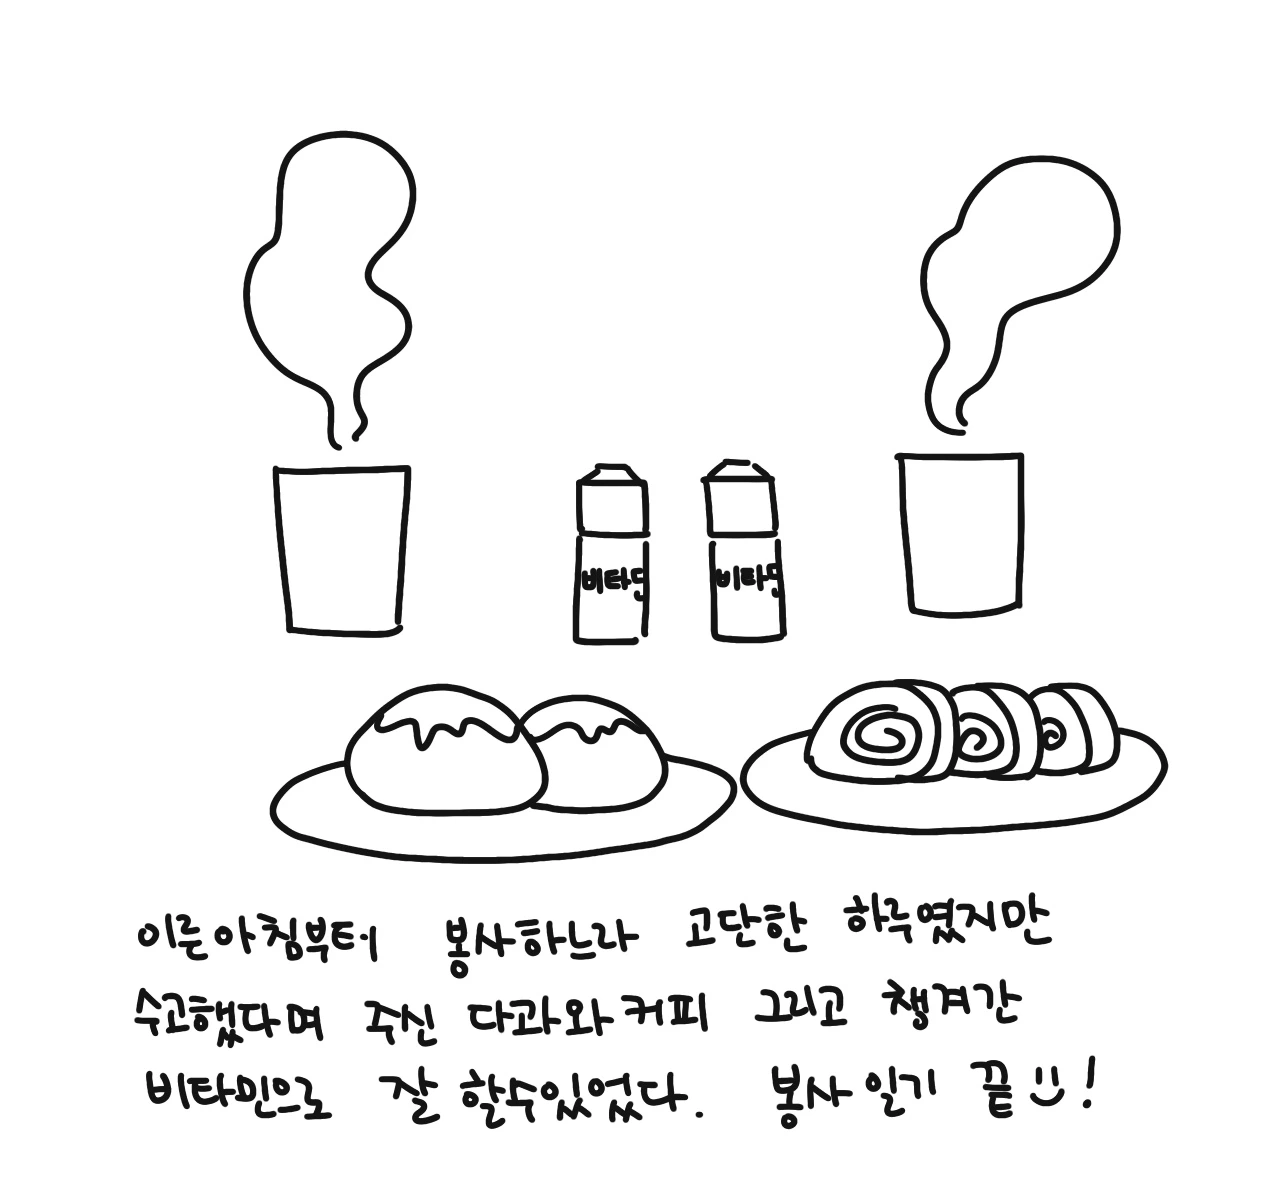 비타민
비타민
이른아침부터 봉사하느라 고단한 하루였지만
수고했다며 주신 다과와커피 그리고 챙겨간
비타민으로 잘 할수있었다. 봉사 일기 끝!